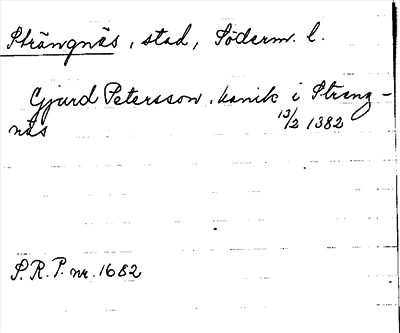 Strängnäs, stad, Söderm. l.
Gjurd Petersson, kanik i Streng-
näs 13/2 1382
S.R.P. nr. 1682